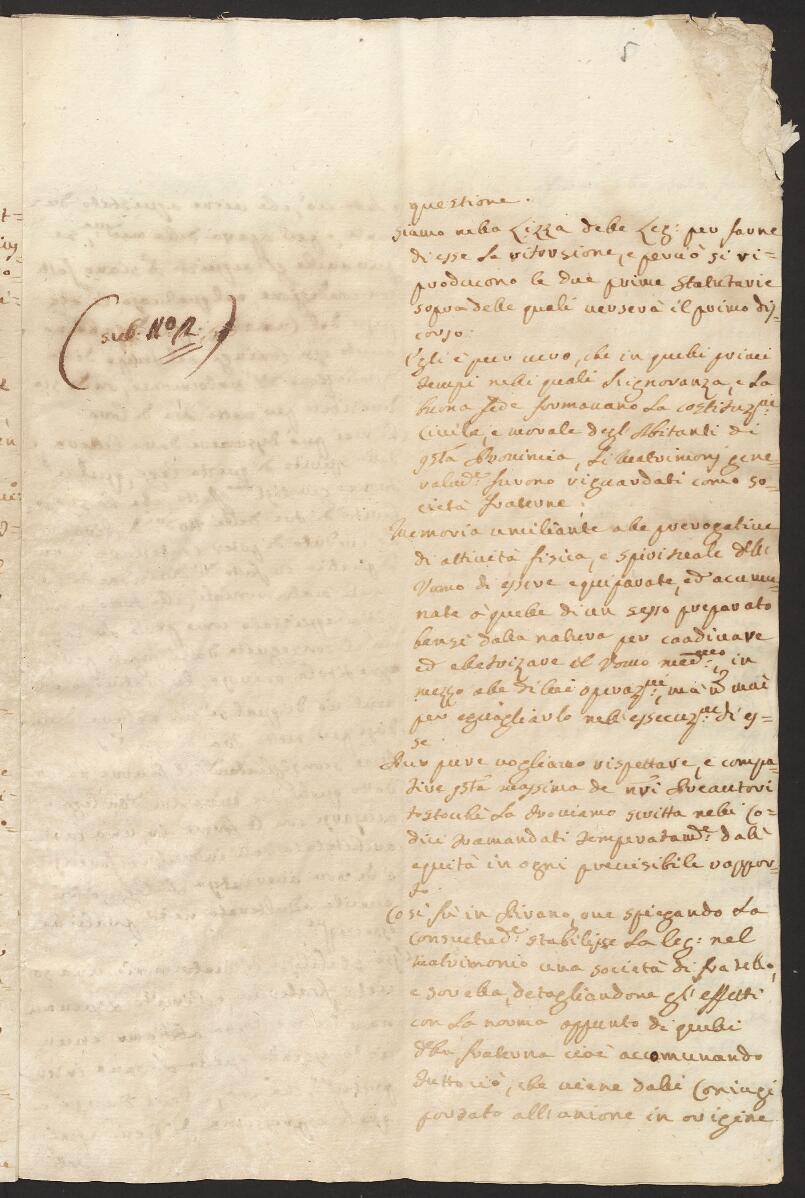 5
questione.
Siamo nella Lizza delle Leg: per farne
di esse la ritorsione, e perciò si ri=
producono le due prime Statutarie
sopra delle quali verserà il primo dis=
corso.
(sub. N.º 12.)
Egli è pur vero, che in quelli primi
tempi nelli quali l'ignoranza, e la
buona fede formavano la costituz.ne
Civile, e morale degl'Abitanti di
qsta Provincia, li Matrimonj gene=
ralm.te furono riguardati como so=
cietà fraterne;
Memoria umiliante alle prerogative
di attività fisica, e spirituale dell'
Uomo di essere equiparate, ed acumu=
nate à quelle di un sesso preparato
bensì dalla natura per coadiuvare
ed eletrizare il Uomo med.mo in
mezzo alle di lui operaz.ni, mà ñ mai
per eguagliarlo nell'essecuz.ne di es=
se.
Pur pure vogliamo rispettare, e compa=
tire qsta massima de nr̃i Precautori
tostochè la troviamo scritta nelli Co=
dici tramandati temperatam.te dall'
equità in ogni precisibile rappor=
to.
Così fù in Pirano, ove spiegando la
consuetud.e stabilisse la leg: nel
Matrimonio una società di fratello,
e sorella, detagliandone gl'effetti
con la norma appunto di quelli
della fraterna cioè accomunando
tuttociò, che viene dalli Coniugi
portato all'unione in origine